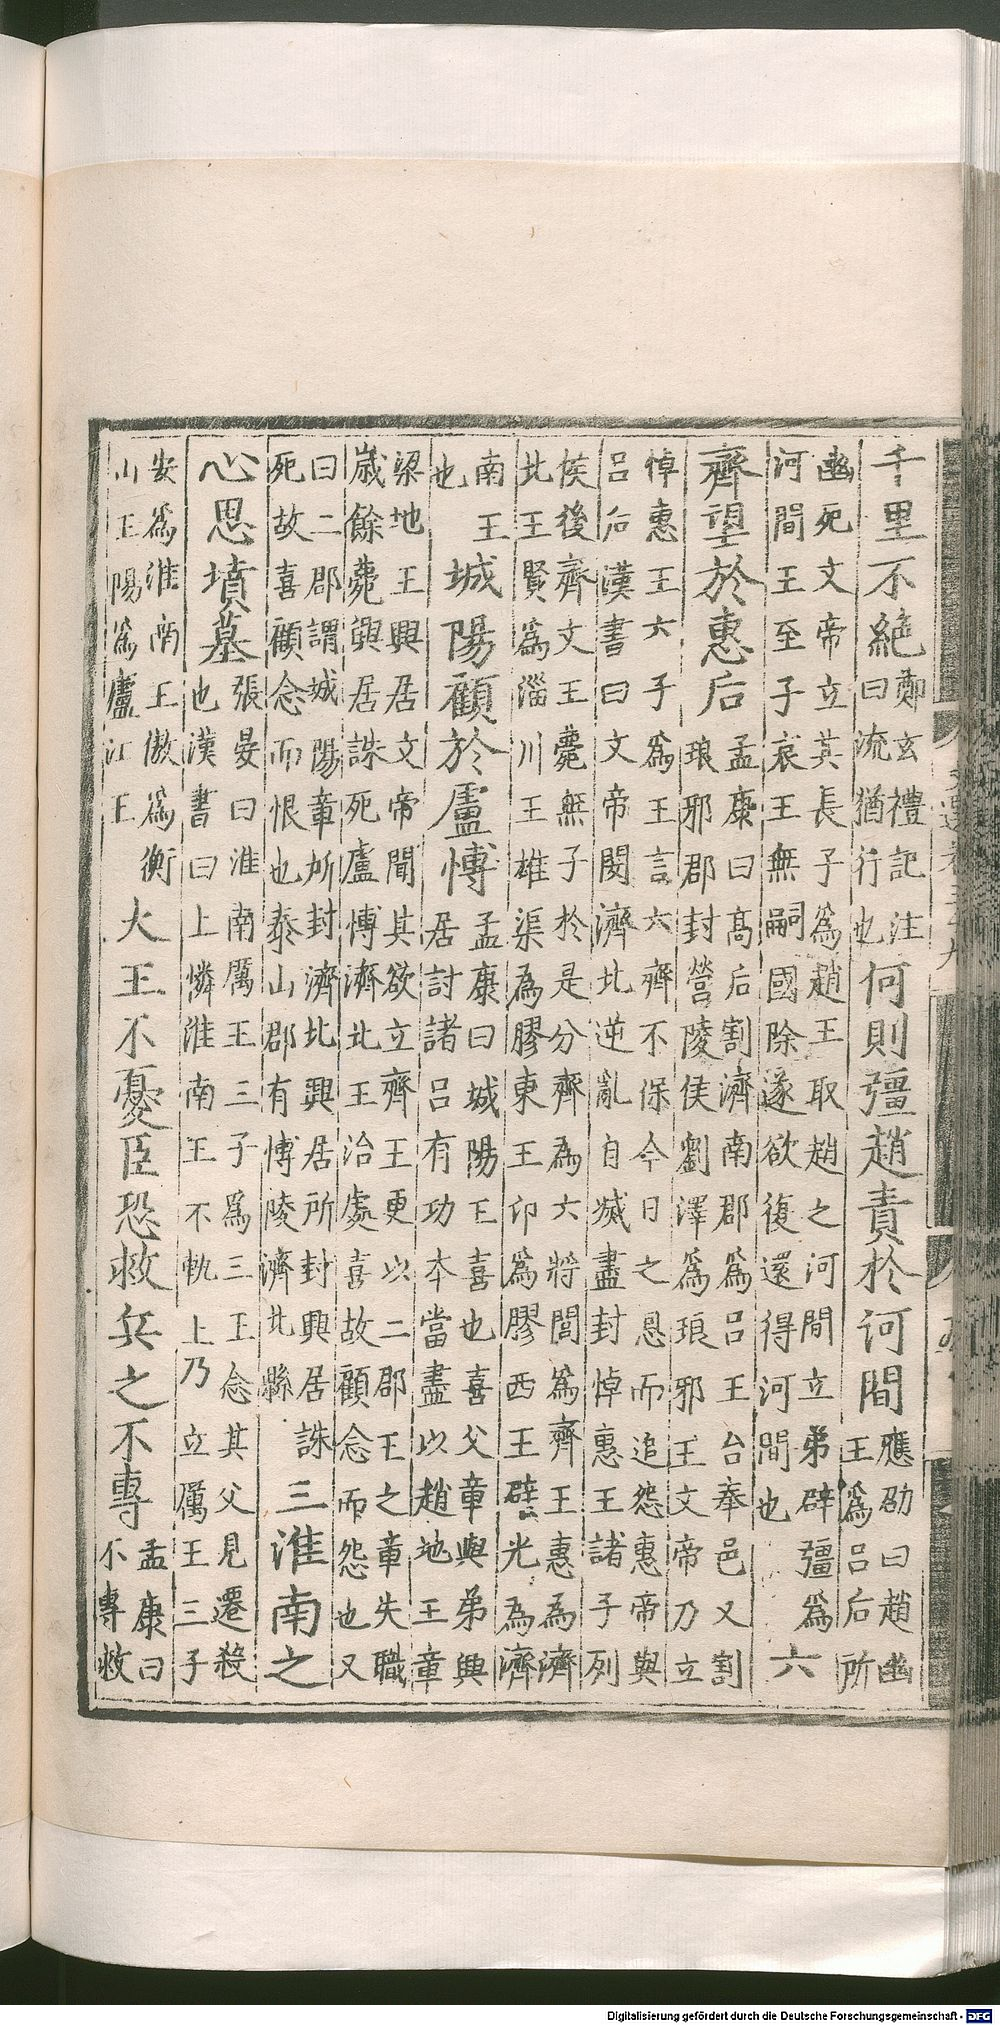 千里不絕鄭玄禮記注曰流猶行也何則彊趙責於河間應劭曰趙幽王為呂后所
幽死文帝立其長子為趙王取趙之河間立弟辟彊為河間王至子哀王無嗣國除遂欲復還得河間也六
齊望於惠后孟康曰高后割濟南郡為呂王台奉邑又割琅邪郡封營陵侯劉澤為琅邪王文帝乃立
悼惠王六子為王言六齊不保今日之恩而追怨惠帝與呂后漢書曰文帝閔濟北逆亂自滅盡封悼惠王諸子列
侯後齊文王薨無子於是分齊為六將閭為齊王惠為濟北王賢為淄川王雄渠為膠東王卬為膠西王辟光為濟
南王也城陽顧於盧博孟康曰城陽王喜也喜父章與弟興居討諸呂有功本當盡以趙地王章
梁地王興居文帝聞其欲立齊王更以二郡王之章失職歲餘薨興居誅死盧博濟北王治處喜故顧念而怨也又
曰二郡謂城陽章所封濟北興居所封興居誅死故喜顧念而恨也泰山郡有博陵濟北縣三淮南之
心思墳墓張晏曰淮南厲王三子為三王念其父見遷殺也漢書曰上憐淮南王不軌上乃立厲王三子
安為淮南王傲為衡山王陽為廬江王大王不憂臣恐救兵之不專孟康曰不專救
Digitalisierung gefördert durch die Deutsche Forschungsgemeinschaft - DFG